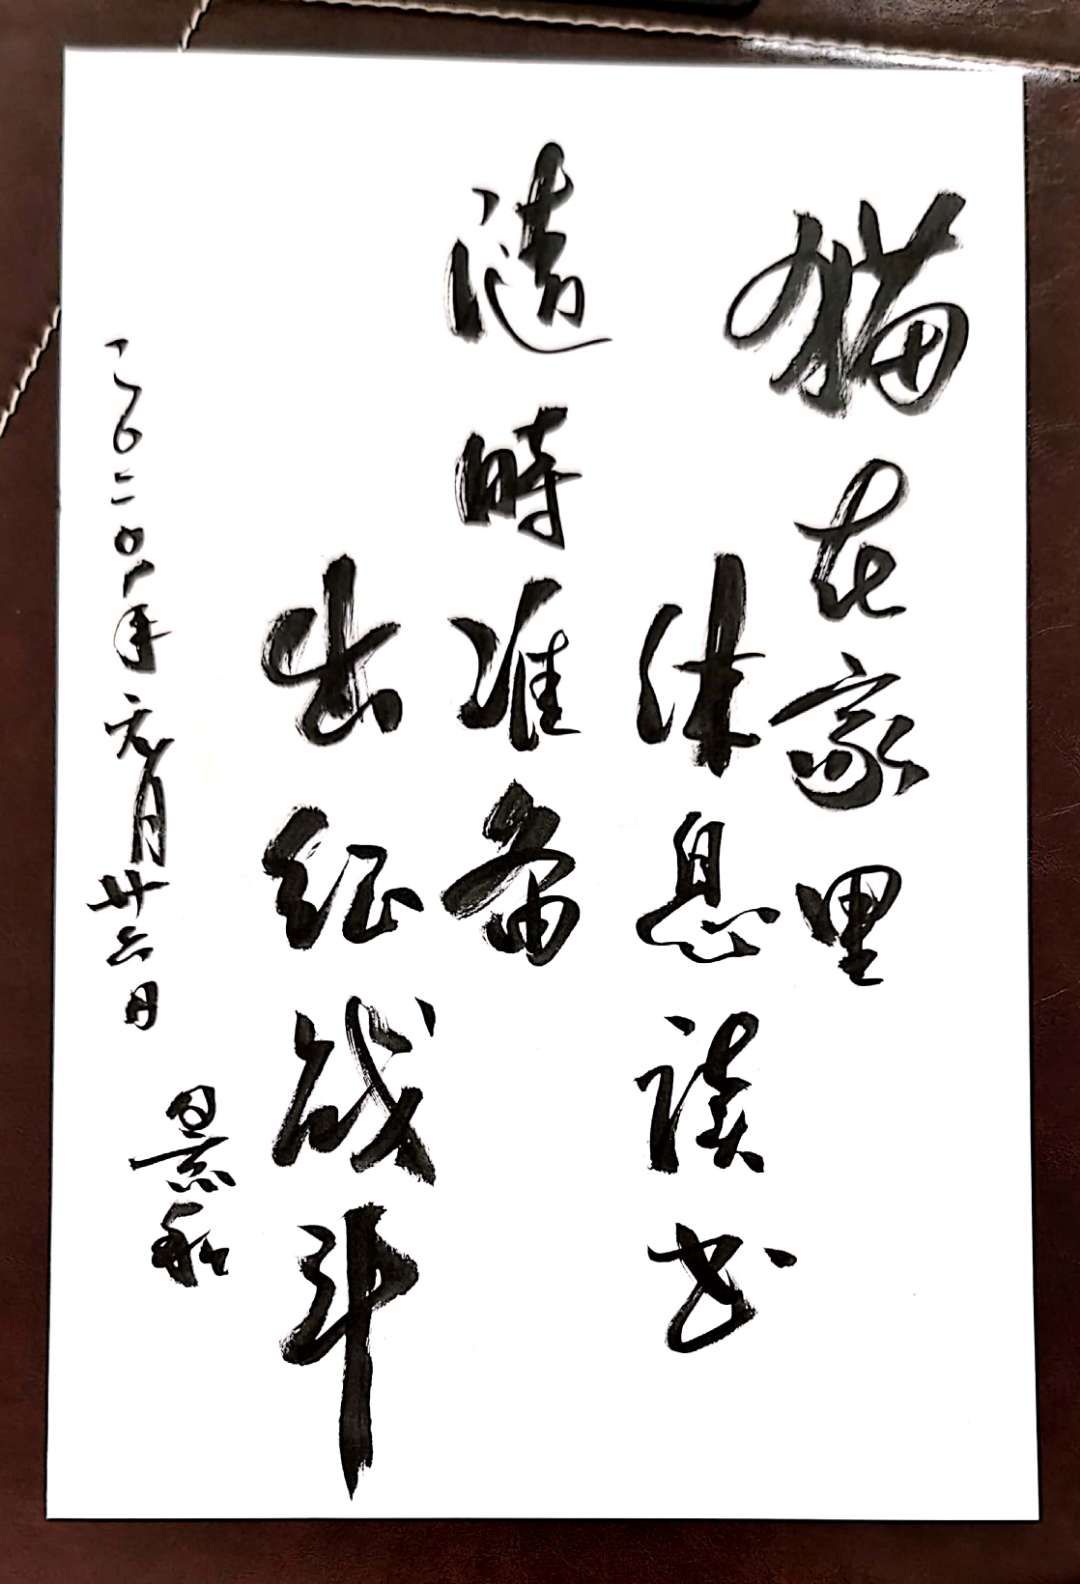 猫在家里
休息读书
随時准备
出征战斗
二〇二〇年元月廿六日
景和